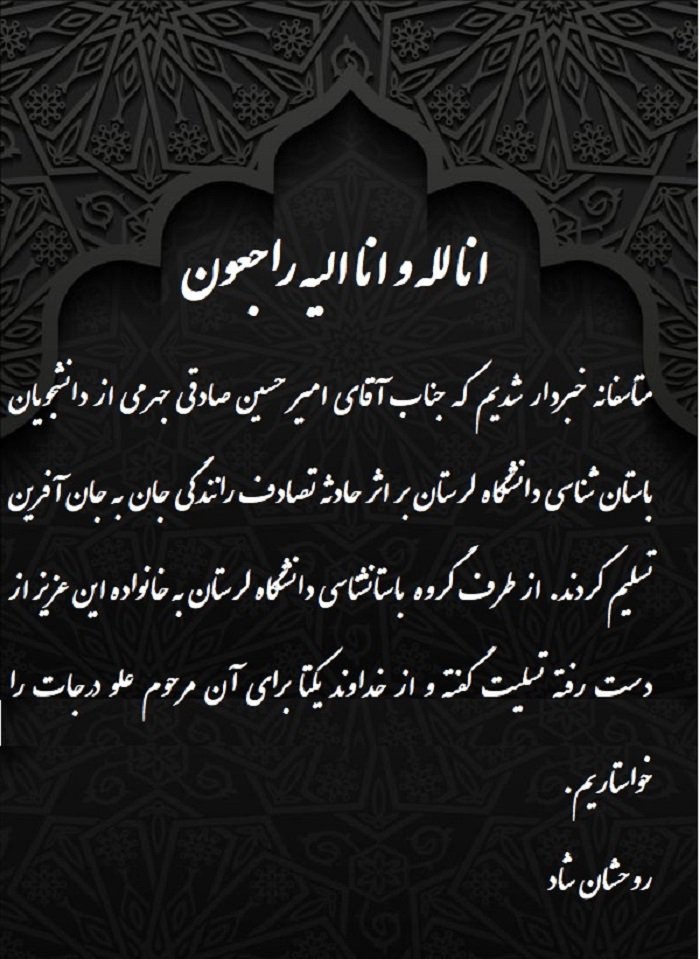 انا لله و انا الیه راجعون
متاسفانه خبردار شدیم که جناب آقای امیر حسین صادقی جهرمی از دانشجویان
باستان شناسی دانشگاه لرستان بر اثر حادثه تصادف رانندگی جان به جان آفرین
تسلیم کردند. از طرف گروه باستانشاسی دانشگاه لرستان به خانواده این عزیز از
دست رفته تسلیت گفته و از خداوند یکتا برای آن مرحوم علو درجات را
خواستاریم.
روحشان شاد